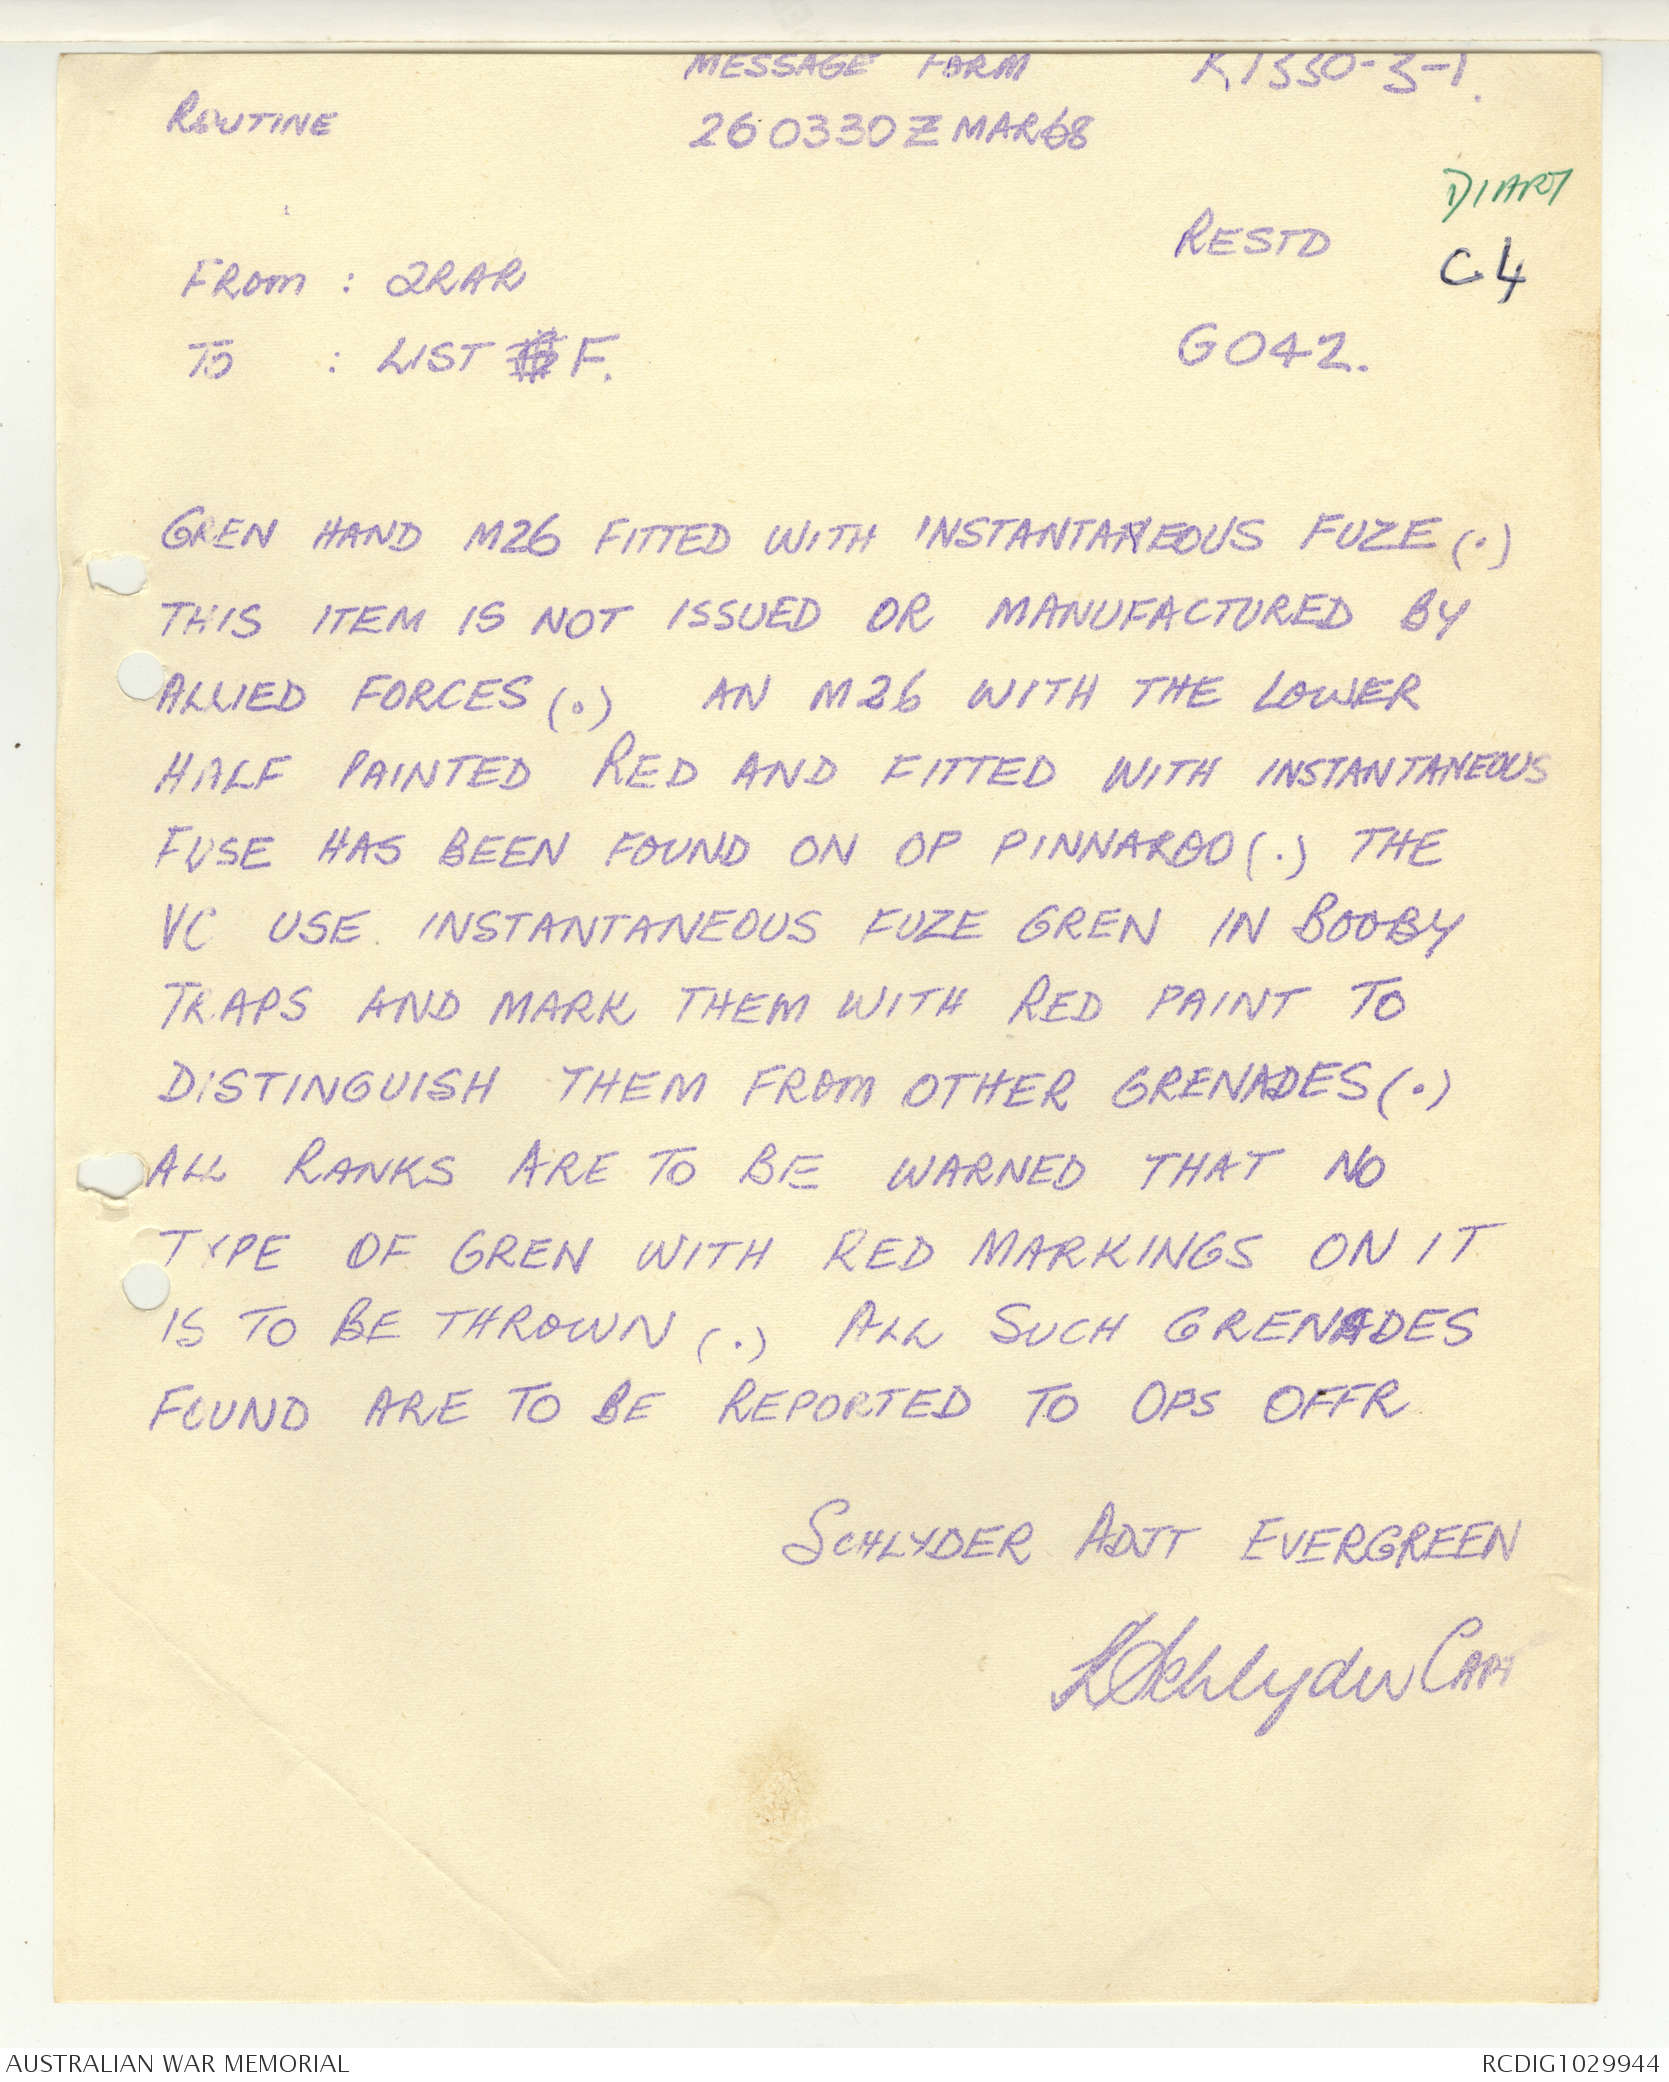 MESSAGE FORM K1330-3-1.
ROUTINE
260330Z MAR68
DIARY
RESTD
C4
FROM : 2RAR
TO : LIST F.
G042.
GREN HAND M26 FITTED WITH INSTANTANEOUS FUZE (.)
THIS ITEM IS NOT ISSUED OR MANUFACTURED BY
ALLIED FORCES (.) AN M26 WITH THE LOWER
HALF PAINTED RED AND FITTED WITH INSTANTANEOUS
FUSE HAS BEEN FOUND ON OP PINNAROO (.) THE
VC USE INSTANTANEOUS FUZE GREN IN BOOBY
TRAPS AND MARK THEM WITH RED PAINT TO
DISTINGUISH THEM FROM OTHER GRENADES (.)
ALL RANKS ARE TO BE WARNED THAT NO
TYPE OF GREN WITH RED MARKINGS ON IT
IS TO BE THROWN (.) ALL SUCH GRENADES
FOUND ARE TO BE REPORTED TO OPS OFFR
SCHLYDER ADJT EVERGREEN
Schlyder CAPT
AUSTRALIAN WAR MEMORIAL
RCDIG1029944